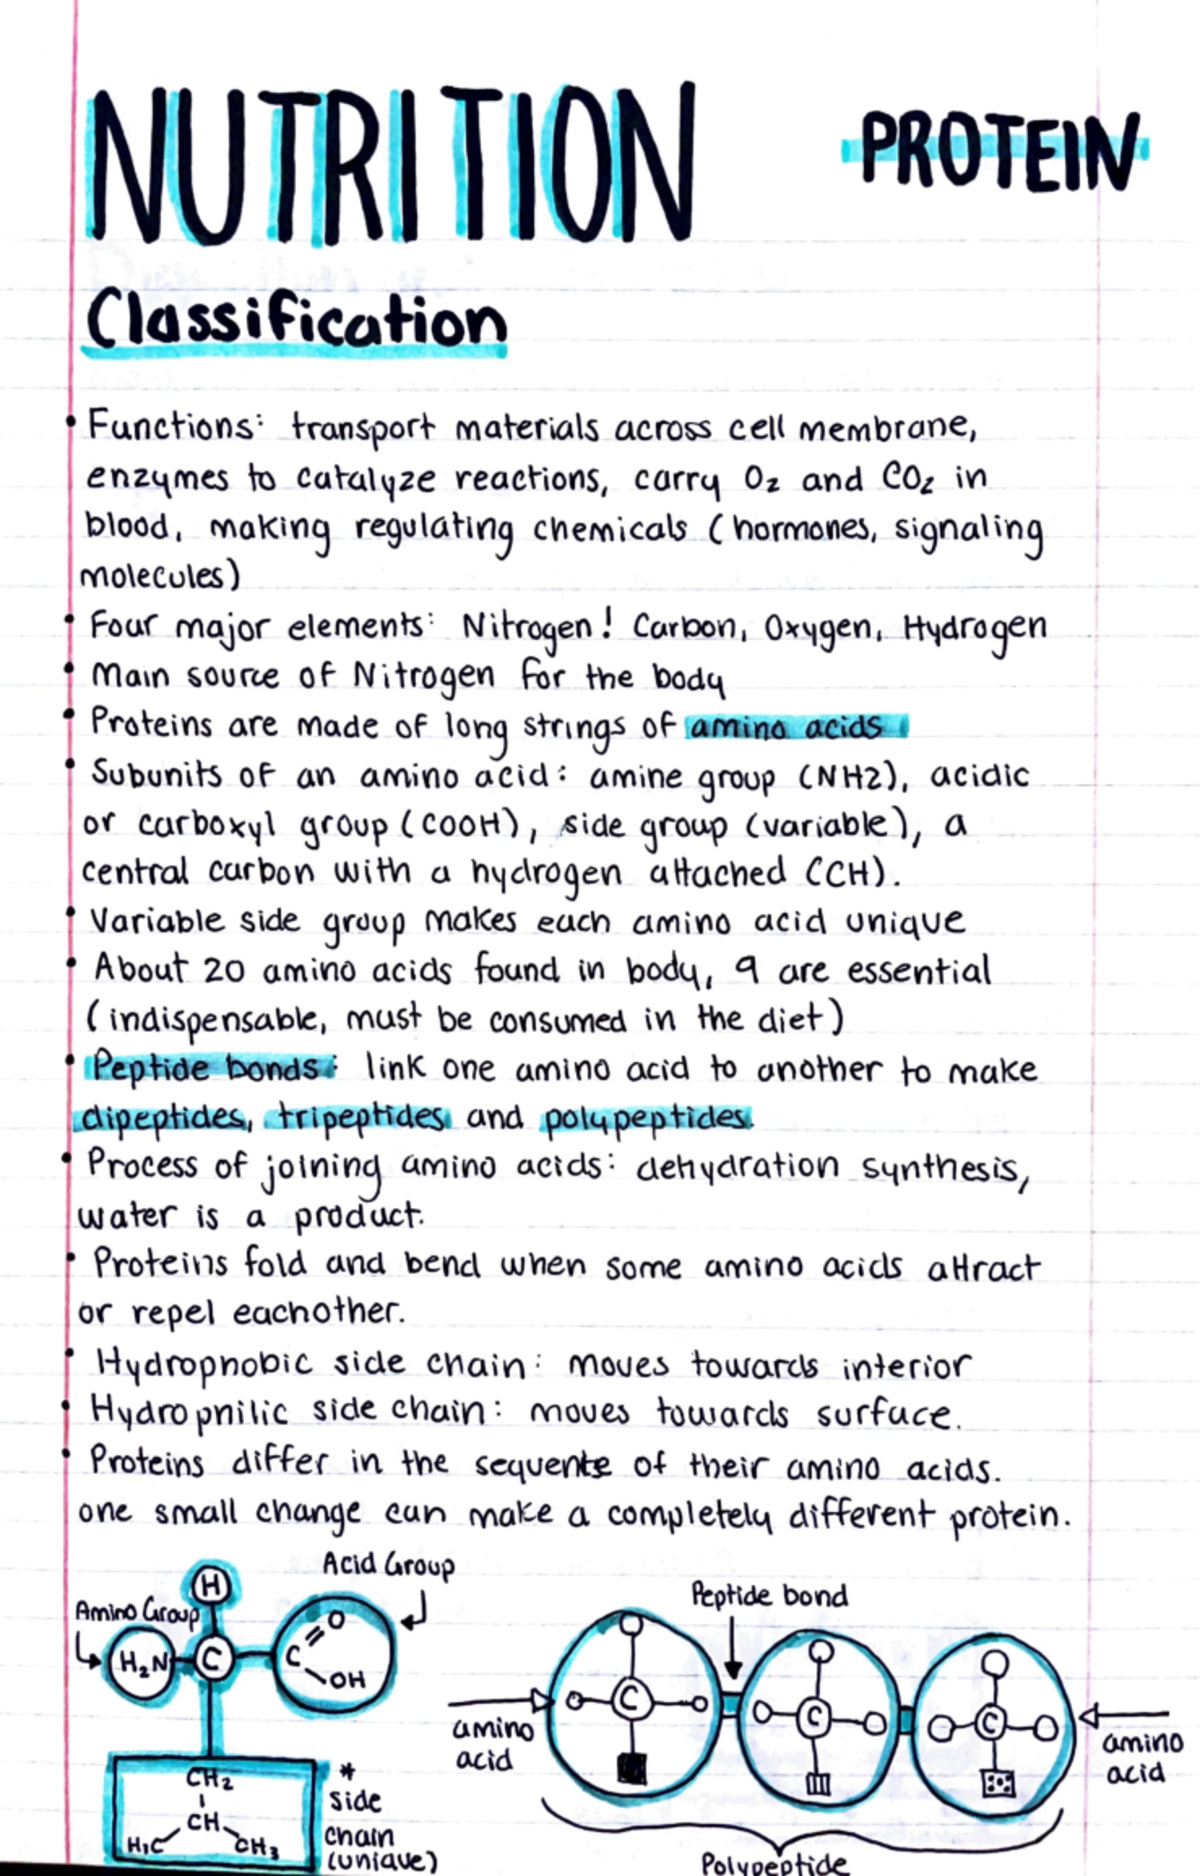 NUTRITION
PROTEIN
Classification
• Functions: transport materials across cell membrane,
enzymes to catalyze reactions, carry O₂ and CO₂ in
blood, making regulating chemicals (hormones, signaling
molecules)
• Four major elements: Nitrogen! Carbon, Oxygen, Hydrogen
• Main source of Nitrogen for the body
• Proteins are made of long strings of amino acids
• Subunits of an amino acid: amine group (NH2), acidic
or carboxyl group (COOH), side group (variable), a
central carbon with a hydrogen attached (CH).
• Variable side group makes each amino acid unique
• About 20 amino acids found in body, 9 are essential
(indispensable, must be consumed in the diet)
• Peptide bonds: link one amino acid to another to make
dipeptides, tripeptides and polypeptides.
• Process of joining amino acids: dehydration synthesis,
water is a product.
• Proteins fold and bend when some amino acids attract
or repel eachother.
• Hydrophobic side chain: moves towards interior
• Hydrophilic side chain: moves towards surface.
• Proteins differ in the sequence of their amino acids.
one small change can make a completely different protein.
Amino Group
Acid Group
H
H₂N
C
C
O
OH
CH₂
CH
H₃C
CH₃
* side
chain
(unique)
Peptide bond
amino
acid
C
C
C
amino
acid
Polypeptide